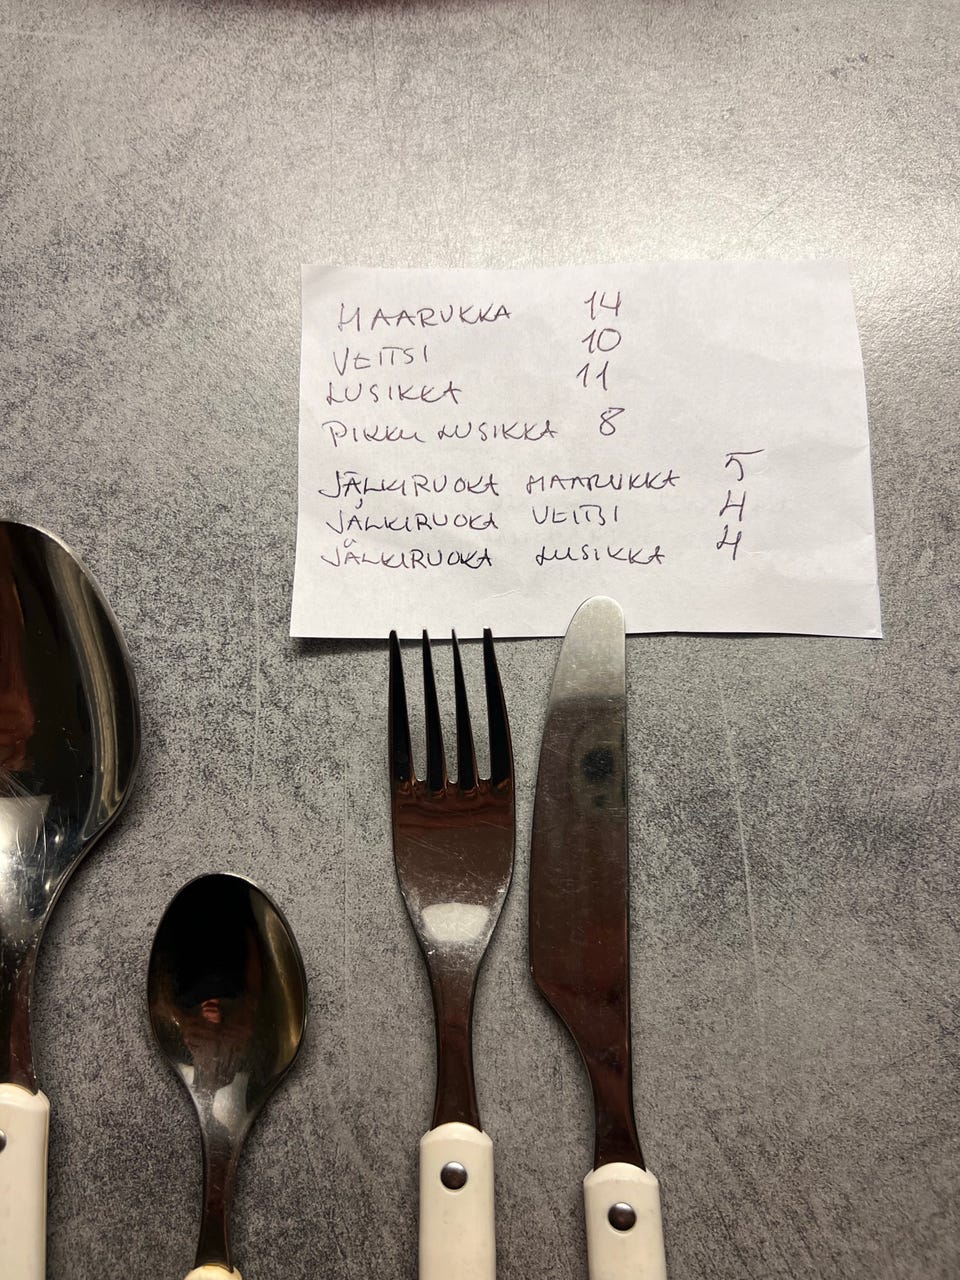 HAARUKKA 14
VEITSI 10
LUSIKKA 11
PIKKU LUSIKKA 8
JÄLKIRUOKA HAARUKKA 5
JÄLKIRUOKA VEITSI 4
JÄLKIRUOKA LUSIKKA 4